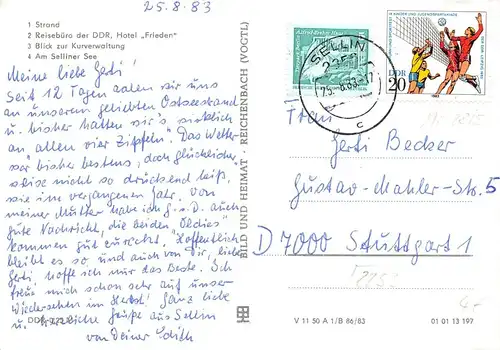 25.8.83
1 Strand
2 Reisebüro der DDR, Hotel „Frieden"
3 Blick zur Kurverwaltung
4 Am Selliner See
Meine liebe Gerti!
Seit 12 Tagen aalen wir uns
an unserem geliebten Ostseestrand
u. bisher hatten wir's wirklich
an allen vier Zipfeln". Das Wetter
war bisher bestens, doch glücklicher-
weise nicht so drückend heiß,
wie im vergangenen Jahr. Von
meiner Mutter habe ich G.s.D. auch
gute Nachricht, die beiden "Oldies"
kommen gut zurecht. Hoffentlich
bleibt es so, und auch von Dir, liebe
Gerti, hoffe ich nur das Beste. Ich
freue mich schon sehr auf unser
Wiedersehen im Herbst! Ganz liebe
u. herzliche Grüße aus Sellin
von Deiner Edith
BILD UND HEIMAT · REICHENBACH (VOGTL)
SELLIN
2356
25.-8.83-17
c
DDR
20
1983
Frau
Gerti Becker
Gustav-Mahler-Str. 5
D 7000 Stuttgart 1
V 11 50 A 1/B 86/83
01 01 13 197